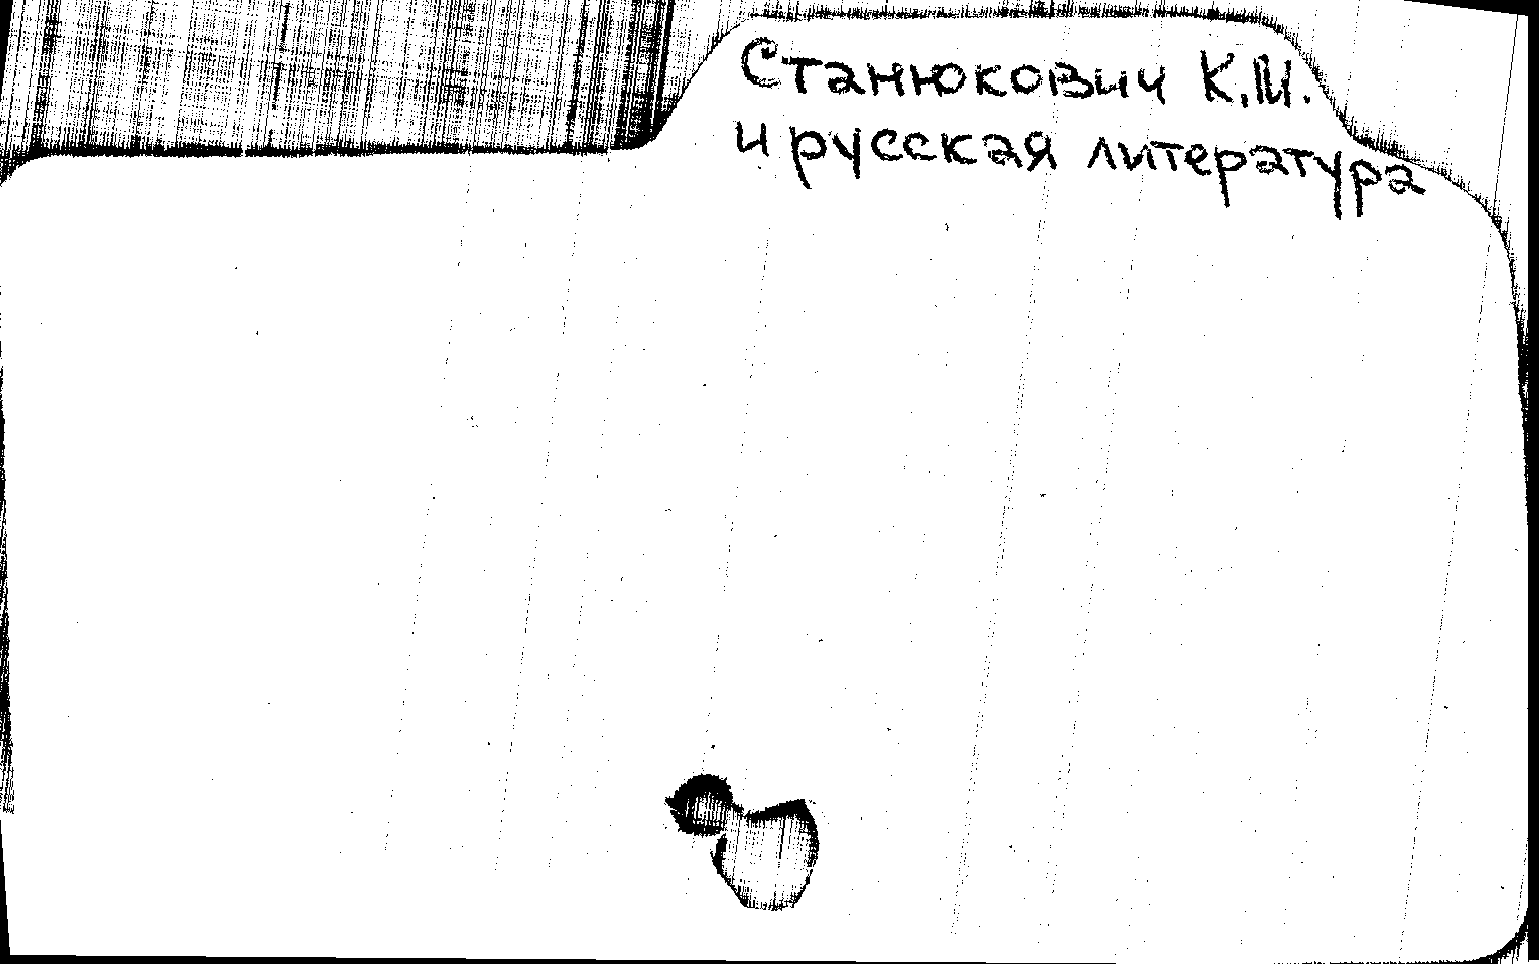 Станюкович К.М.
и русская литература